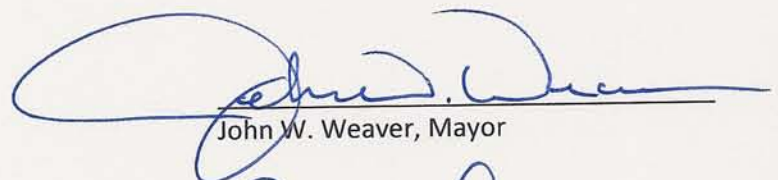 John W. Weaver
John W. Weaver, Mayor